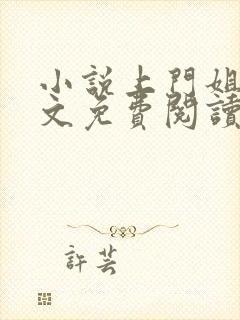 小說上門姐
文免費閱讀
許芸